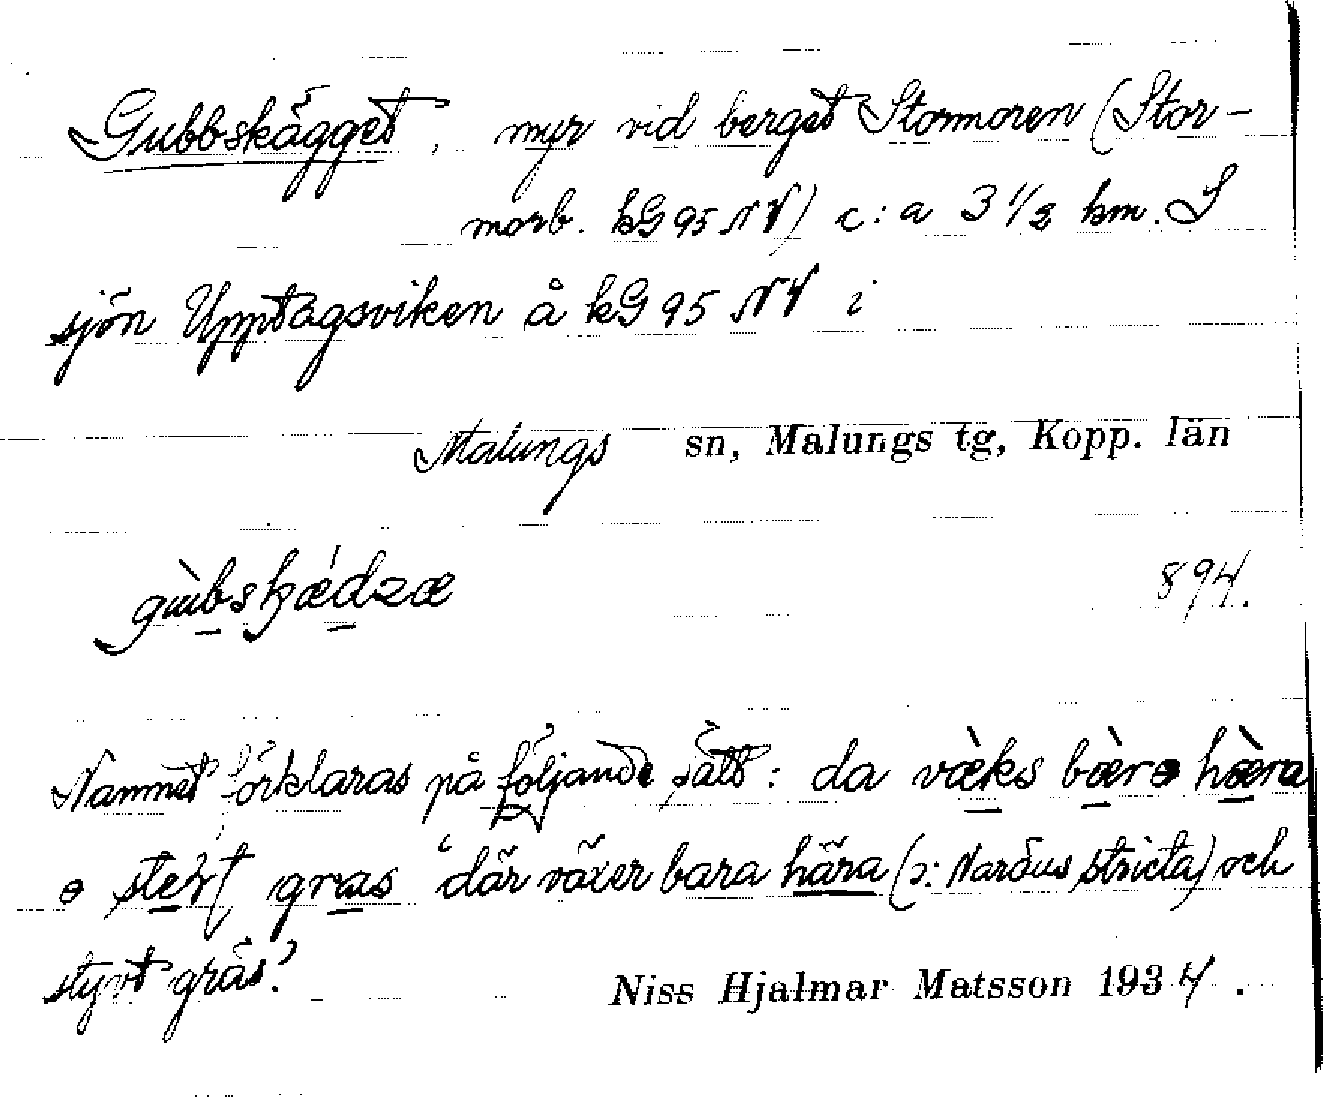 Gubbskägget, myr vid berget Stormoren (Stor-
morb. kG 95 NV) c:a 3 1/2 km. S
sjön Upptagsviken å kG 95 NV i
Malungs sn, Malungs tg, Kopp. län
gùbskǽdzæ 894.
Namnet förklaras på följande sätt: da væ̀ks bæ̀rɘ hæ̀ra
ɘ stevt gras 'där växer bara hära (ɔ: Nardus stricta) och
styvt gräs'.
Niss Hjalmar Matsson 1934.